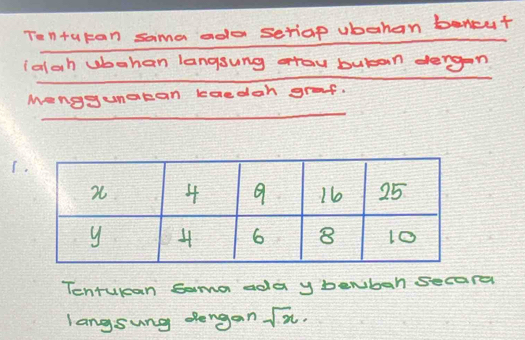 Tentukan sama ada setiap ubahan berikut
ialah ubahan langsung atau bukan dengan
menggunakan kaedah graf.
1.
x 4 9 16 25
y 4 6 8 10
Tentukan sama ada y berubah secara
langsung dengan √x.